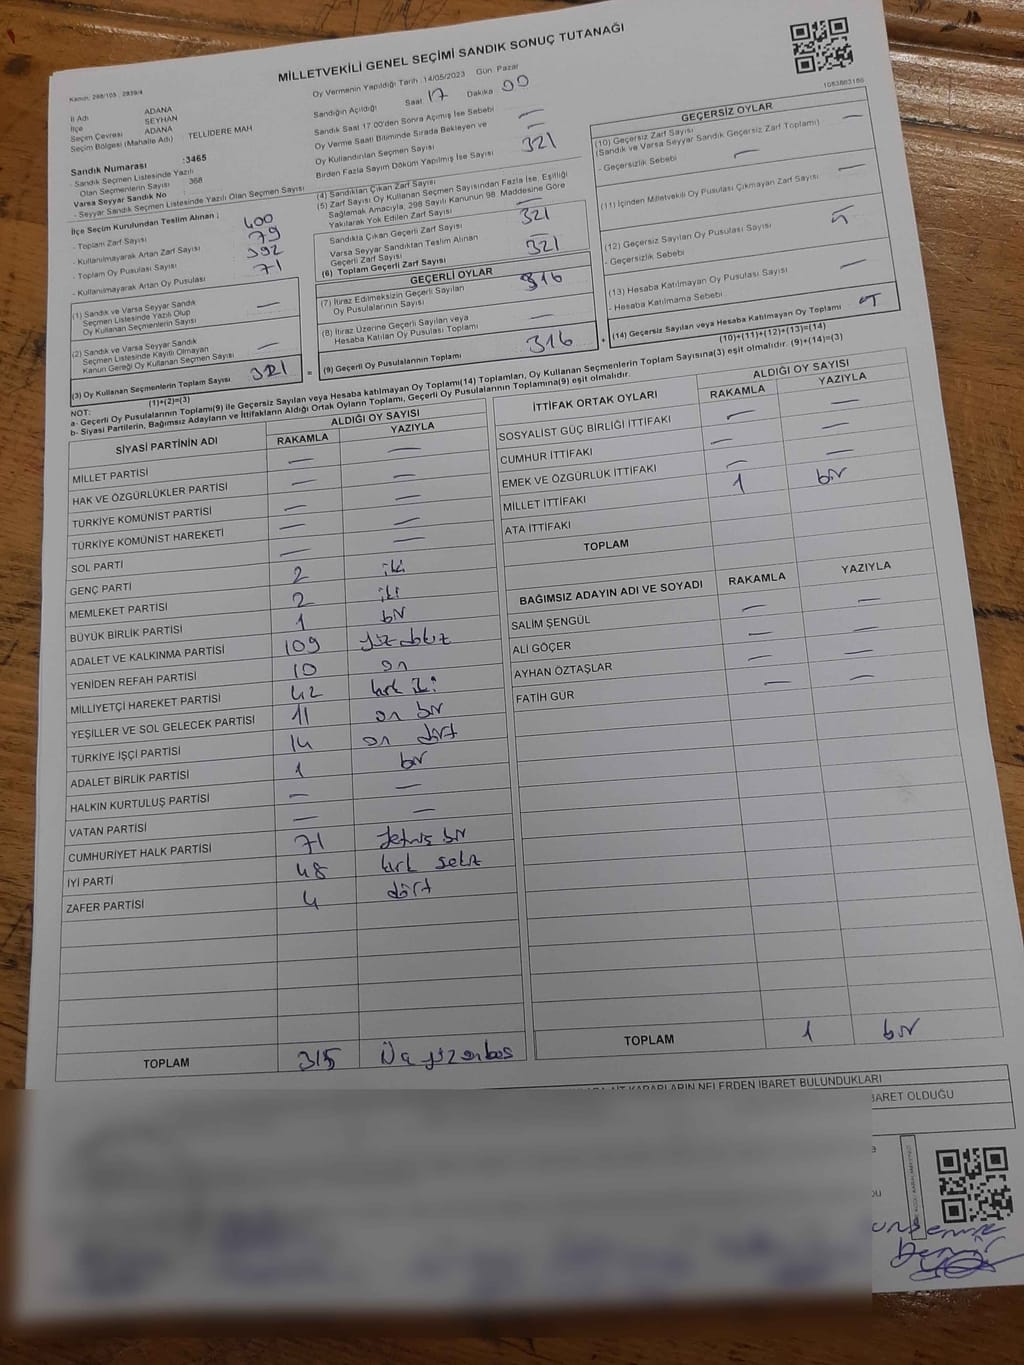 MİLLETVEKİLİ GENEL SEÇİMİ SANDIK SONUÇ TUTANAĞI
Kanun: 298/105 , 2839/4
İl Adı ADANA
İlçe SEYHAN
Seçim Çevresi ADANA
Seçim Bölgesi (Mahalle Adı) TELLİDERE MAH
Sandık Numarası :3465
- Sandık Seçmen Listesinde Yazılı
Olan Seçmenlerin Sayısı 368
Varsa Seyyar Sandık No
- Seyyar Sandık Seçmen Listesinde Yazılı Olan Seçmen Sayısı
Oy Vermenin Yapıldığı Tarih :14/05/2023 Gün: Pazar
Sandığın Açıldığı Saat 17 Dakika 00
Sandık Saat 17:00'den Sonra Açılmış İse Sebebi —
Oy Verme Saati Bitiminde Sırada Bekleyen ve
Oy Kullandırılan Seçmen Sayısı —
Birden Fazla Sayım Döküm Yapılmış İse Sayısı
1083863186
İlçe Seçim Kurulundan Teslim Alınan ;
- Toplam Zarf Sayısı 400
- Kullanılmayarak Artan Zarf Sayısı 79
- Toplam Oy Pusulası Sayısı 392
- Kullanılmayarak Artan Oy Pusulası 71
(1) Sandık ve Varsa Seyyar Sandık
Seçmen Listesinde Yazılı Olup
Oy Kullanan Seçmenlerin Sayısı —
(2) Sandık ve Varsa Seyyar Sandık
Seçmen Listesinde Kayıtlı Olmayan
Kanun Gereği Oy Kullanan Seçmen Sayısı —
(3) Oy Kullanan Seçmenlerin Toplam Sayısı 321
(1)+(2)=(3)
(4) Sandıktan Çıkan Zarf Sayısı 321
(5) Zarf Sayısı Oy Kullanan Seçmen Sayısından Fazla İse, Eşitliği
Sağlamak Amacıyla, 298 Sayılı Kanunun 98. Maddesine Göre
Yakılarak Yok Edilen Zarf Sayısı —
Sandıkta Çıkan Geçerli Zarf Sayısı 321
Varsa Seyyar Sandıktan Teslim Alınan
Geçerli Zarf Sayısı —
(6) Toplam Geçerli Zarf Sayısı 321
GEÇERLİ OYLAR
(7) İtiraz Edilmeksizin Geçerli Sayılan
Oy Pusulalarının Sayısı 316
(8) İtiraz Üzerine Geçerli Sayılan veya
Hesaba Katılan Oy Pusulası Toplamı —
= (9) Geçerli Oy Pusulalarının Toplamı 316 +
GEÇERSİZ OYLAR
(10) Geçersiz Zarf Sayısı
(Sandık ve Varsa Seyyar Sandık Geçersiz Zarf Toplamı) —
- Geçersizlik Sebebi —
(11) İçinden Milletvekili Oy Pusulası Çıkmayan Zarf Sayısı —
(12) Geçersiz Sayılan Oy Pusulası Sayısı 5
- Geçersizlik Sebebi
(13) Hesaba Katılmayan Oy Pusulası Sayısı —
- Hesaba Katılmama Sebebi
(14) Geçersiz Sayılan veya Hesaba Katılmayan Oy Toplamı
(10)+(11)+(12)+(13)=(14)
NOT:
a- Geçerli Oy Pusulalarının Toplamı(9) ile Geçersiz Sayılan veya Hesaba katılmayan Oy Toplamı(14) Toplamları, Oy Kullanan Seçmenlerin Toplam Sayısına(3) eşit olmalıdır. (9)+(14)=(3)
b- Siyasi Partilerin, Bağımsız Adayların ve İttifakların Aldığı Ortak Oyların Toplamı, Geçerli Oy Pusulalarının Toplamına(9) eşit olmalıdır.
SİYASİ PARTİNİN ADI ALDIĞI OY SAYISI
RAKAMLA YAZIYLA
MİLLET PARTİSİ — —
HAK VE ÖZGÜRLÜKLER PARTİSİ — —
TÜRKİYE KOMÜNİST PARTİSİ — —
TÜRKİYE KOMÜNİST HAREKETİ — —
SOL PARTİ — —
GENÇ PARTİ 2 iki
MEMLEKET PARTİSİ 2 iki
BÜYÜK BİRLİK PARTİSİ 1 bir
ADALET VE KALKINMA PARTİSİ 109 yüz dokuz
YENİDEN REFAH PARTİSİ 10 on
MİLLİYETÇİ HAREKET PARTİSİ 42 kırk iki
YEŞİLLER VE SOL GELECEK PARTİSİ 11 on bir
TÜRKİYE İŞÇİ PARTİSİ 14 on dört
ADALET BİRLİK PARTİSİ 1 bir
HALKIN KURTULUŞ PARTİSİ — —
VATAN PARTİSİ — —
CUMHURİYET HALK PARTİSİ 71 yetmiş bir
İYİ PARTİ 48 kırk sekiz
ZAFER PARTİSİ 4 dört
TOPLAM 315 Üç yüz onbeş
İTTİFAK ORTAK OYLARI ALDIĞI OY SAYISI
RAKAMLA YAZIYLA
SOSYALİST GÜÇ BİRLİĞİ İTTİFAKI — —
CUMHUR İTTİFAKI — —
EMEK VE ÖZGÜRLÜK İTTİFAKI — —
MİLLET İTTİFAKI 1 bir
ATA İTTİFAKI
TOPLAM
BAĞIMSIZ ADAYIN ADI VE SOYADI RAKAMLA YAZIYLA
SALİM ŞENGÜL — —
ALİ GÖÇER — —
AYHAN ÖZTAŞLAR — —
FATİH GÜR — —
TOPLAM 1 bir
KARARLARIN NELERDEN İBARET BULUNDUKLARI
BARET OLDUĞU